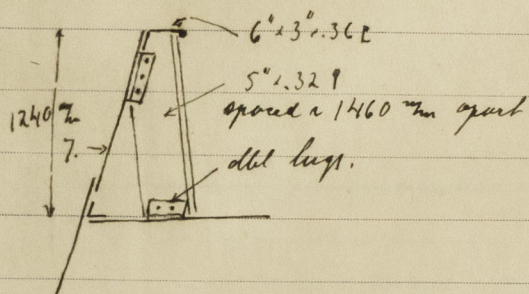 6" x 3" x .36 [
5" x .32 P
spaced ~ 1460 m/m apart
1240 m/m
7.
dbl lugs.